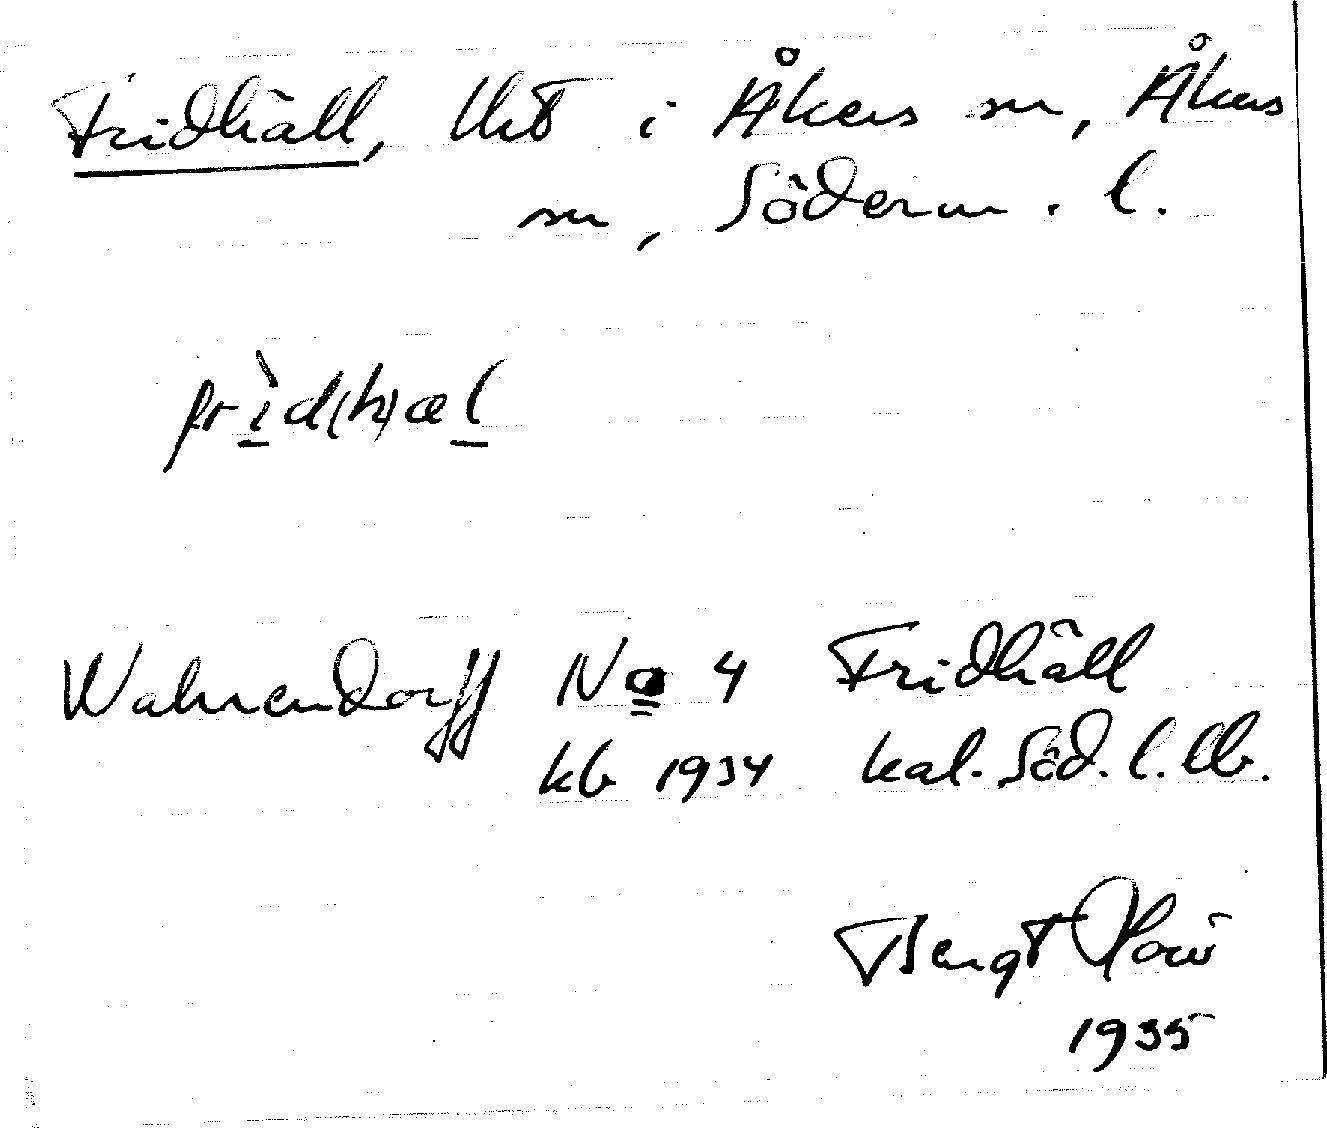 Fridhäll, lht i Åkers sn, Åkers
sn, Söderm. l.
frìd(h)æl
Wahrendorff No 4 Fridhäll
kb 1934 kal. Söd. l. llb.
Bengt
1935